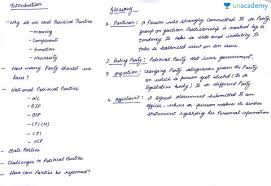 Introduction
- Why do we need Political Parties
- meaning
- Components
- function
- Necessity
- How many Party should we have?
- National Political Parties
- INC
- BJP
- BSP
- CPI(M)
- CPI
- NCP
- State Parties
- Challenges to Political Parties
- How can Parties be reformed?
unacademy
Glossary
1. Partisan : A Person who strongly committed to a Party
group or faction. Partisanship is marked by a
tendency to take a side and inability to
take a balanced view on an issue
2. Ruling Party : Political Party that runs government.
3. Defection : Changing Party allegiance from the Party
on which a person got elected (to a
legislative body) to a different Party
4. Affidavit : A signed document submitted to an
officer, where a person makes a sworn
statement regarding his Personal information